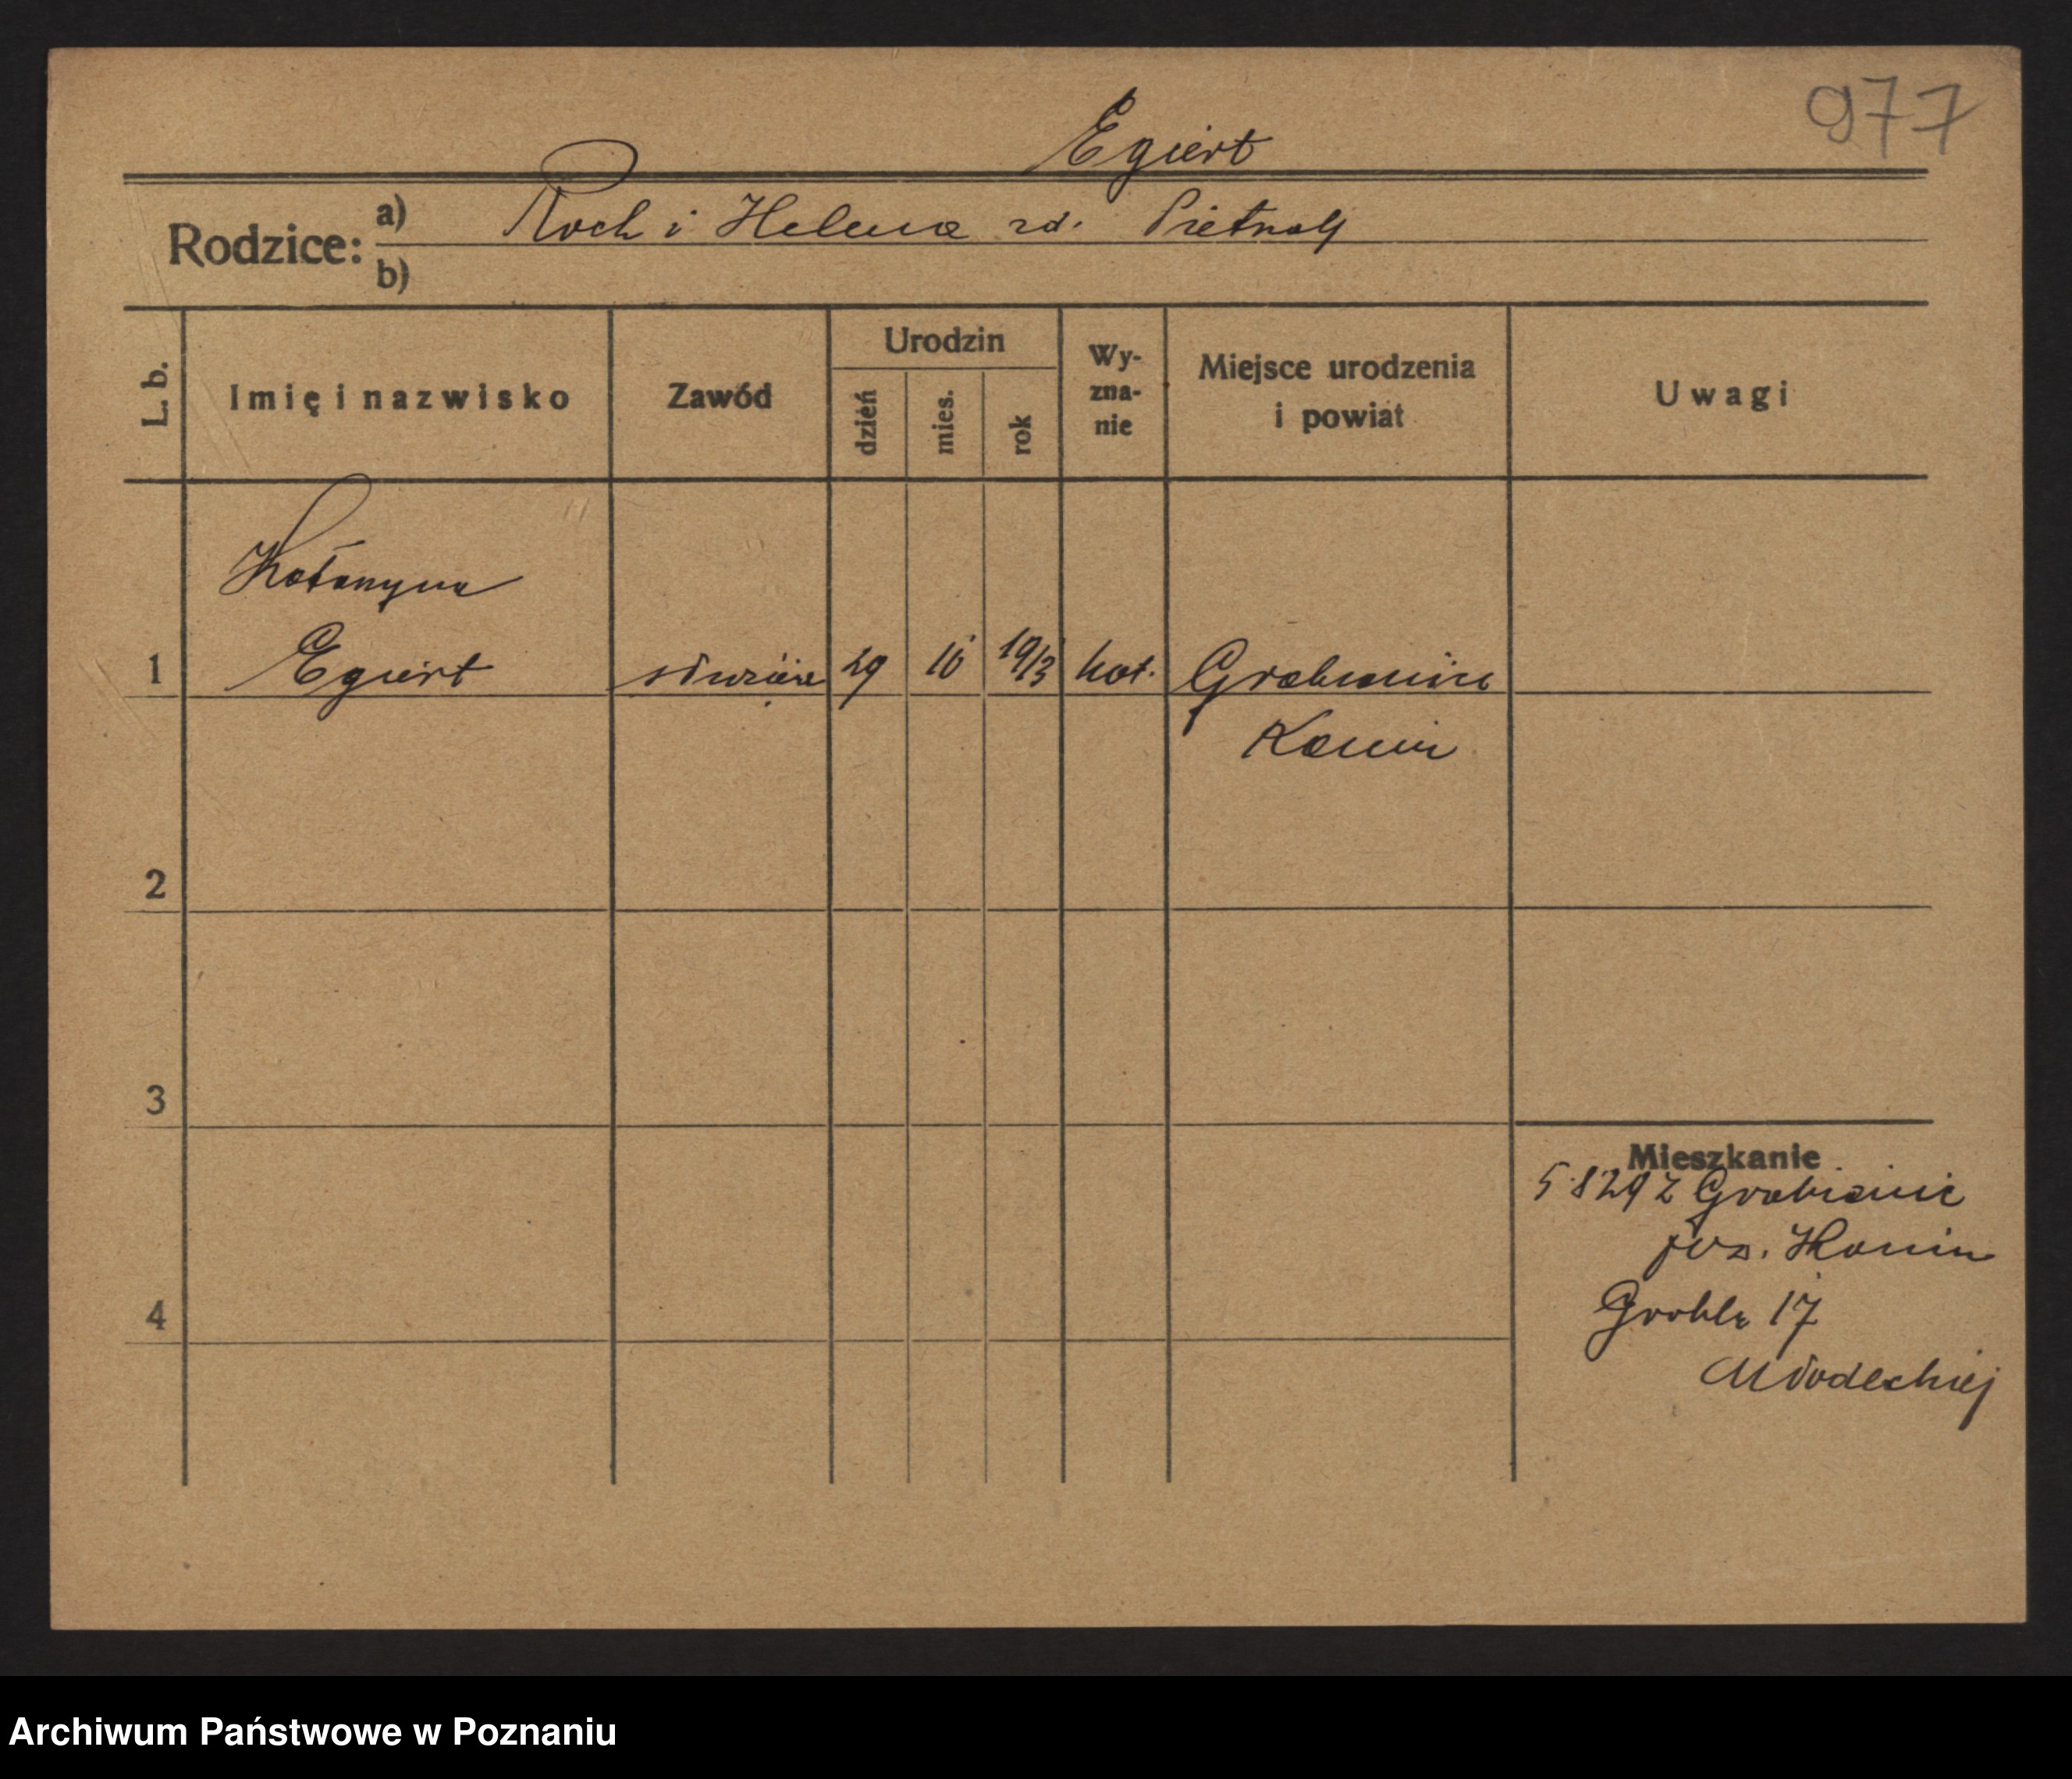 977
Egiert
Rodzice: a) Roch i Helena zd. Pietrzak
b)
L. b.
Imię i nazwisko
Zawód
Urodzin
dzień
mies.
rok
Wy-
zna-
nie
Miejsce urodzenia
i powiat
Uwagi
Katarzyna
1 Egiert służąca 29 10 1913 kat. Grabienice
Konin
2
3
4
Mieszkanie
5.8 29 z Grabienic
pow. Konin
Grobla 17
Młodeckiej
Archiwum Państwowe w Poznaniu